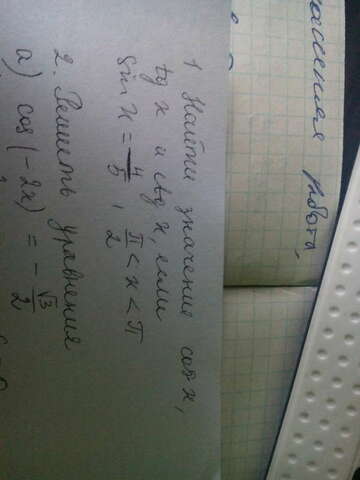 работа,
1 Найти значение cos x,
tg x и ctg x, если
sin x = 4/5, π/2 < x < π
2. Решить уравнения
а) cos(-2x) = -√3/2